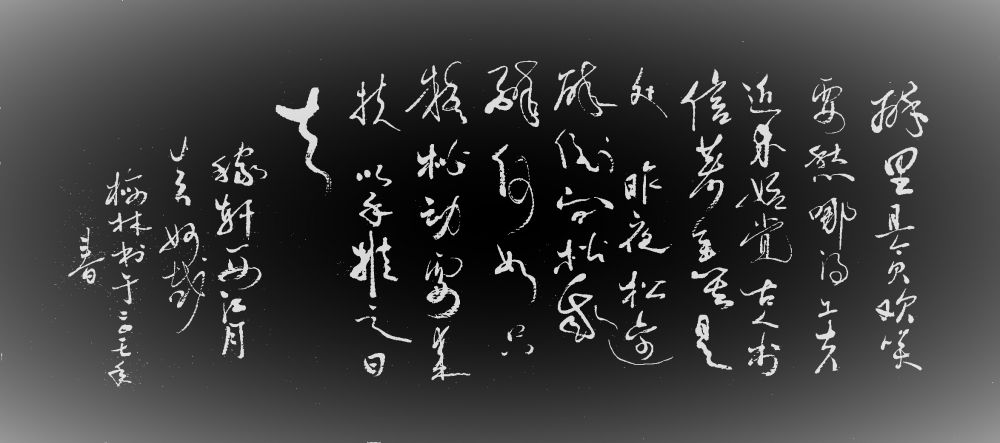 醉里且贪欢笑
要愁哪得工夫
近来始觉古人书
信著全无是
处 昨夜松边
醉倒问松我
醉何如只
疑松动要来
扶以手推之曰
去
稼轩西江月
林书于二
春